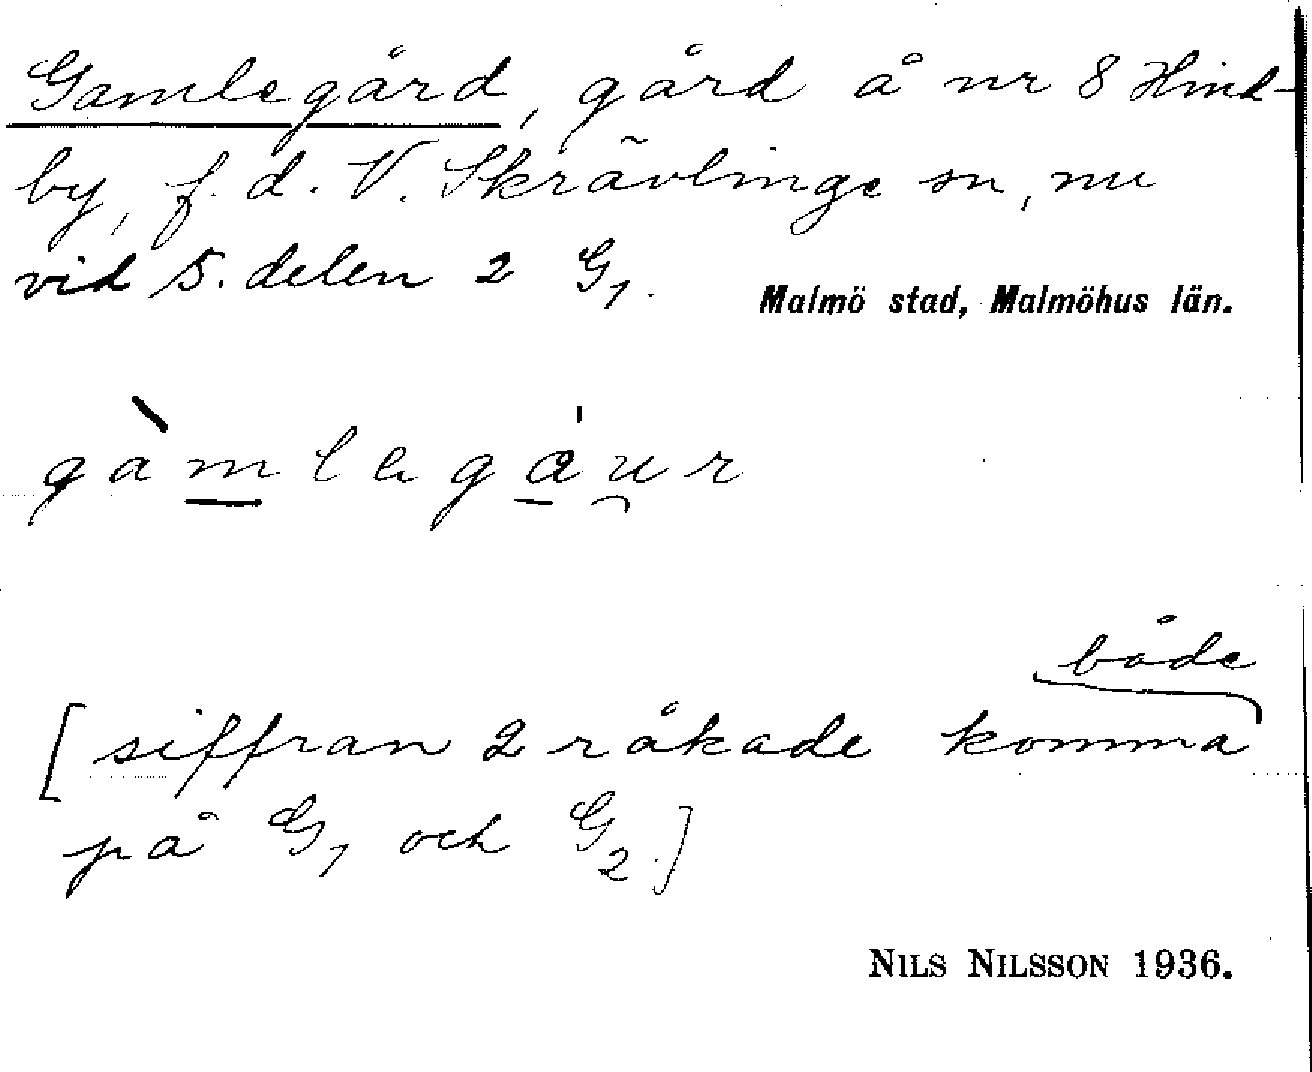 Gamlegård, gård å nr 8 Hind-
by, f. d. V. Skrävlinge sn, nu
vid S. delen 2 G1.
Malmö stad, Malmöhus län.
gàmlagáur
både
[siffran 2 råkade komma
på G1 och G2.]
NILS NILSSON 1936.